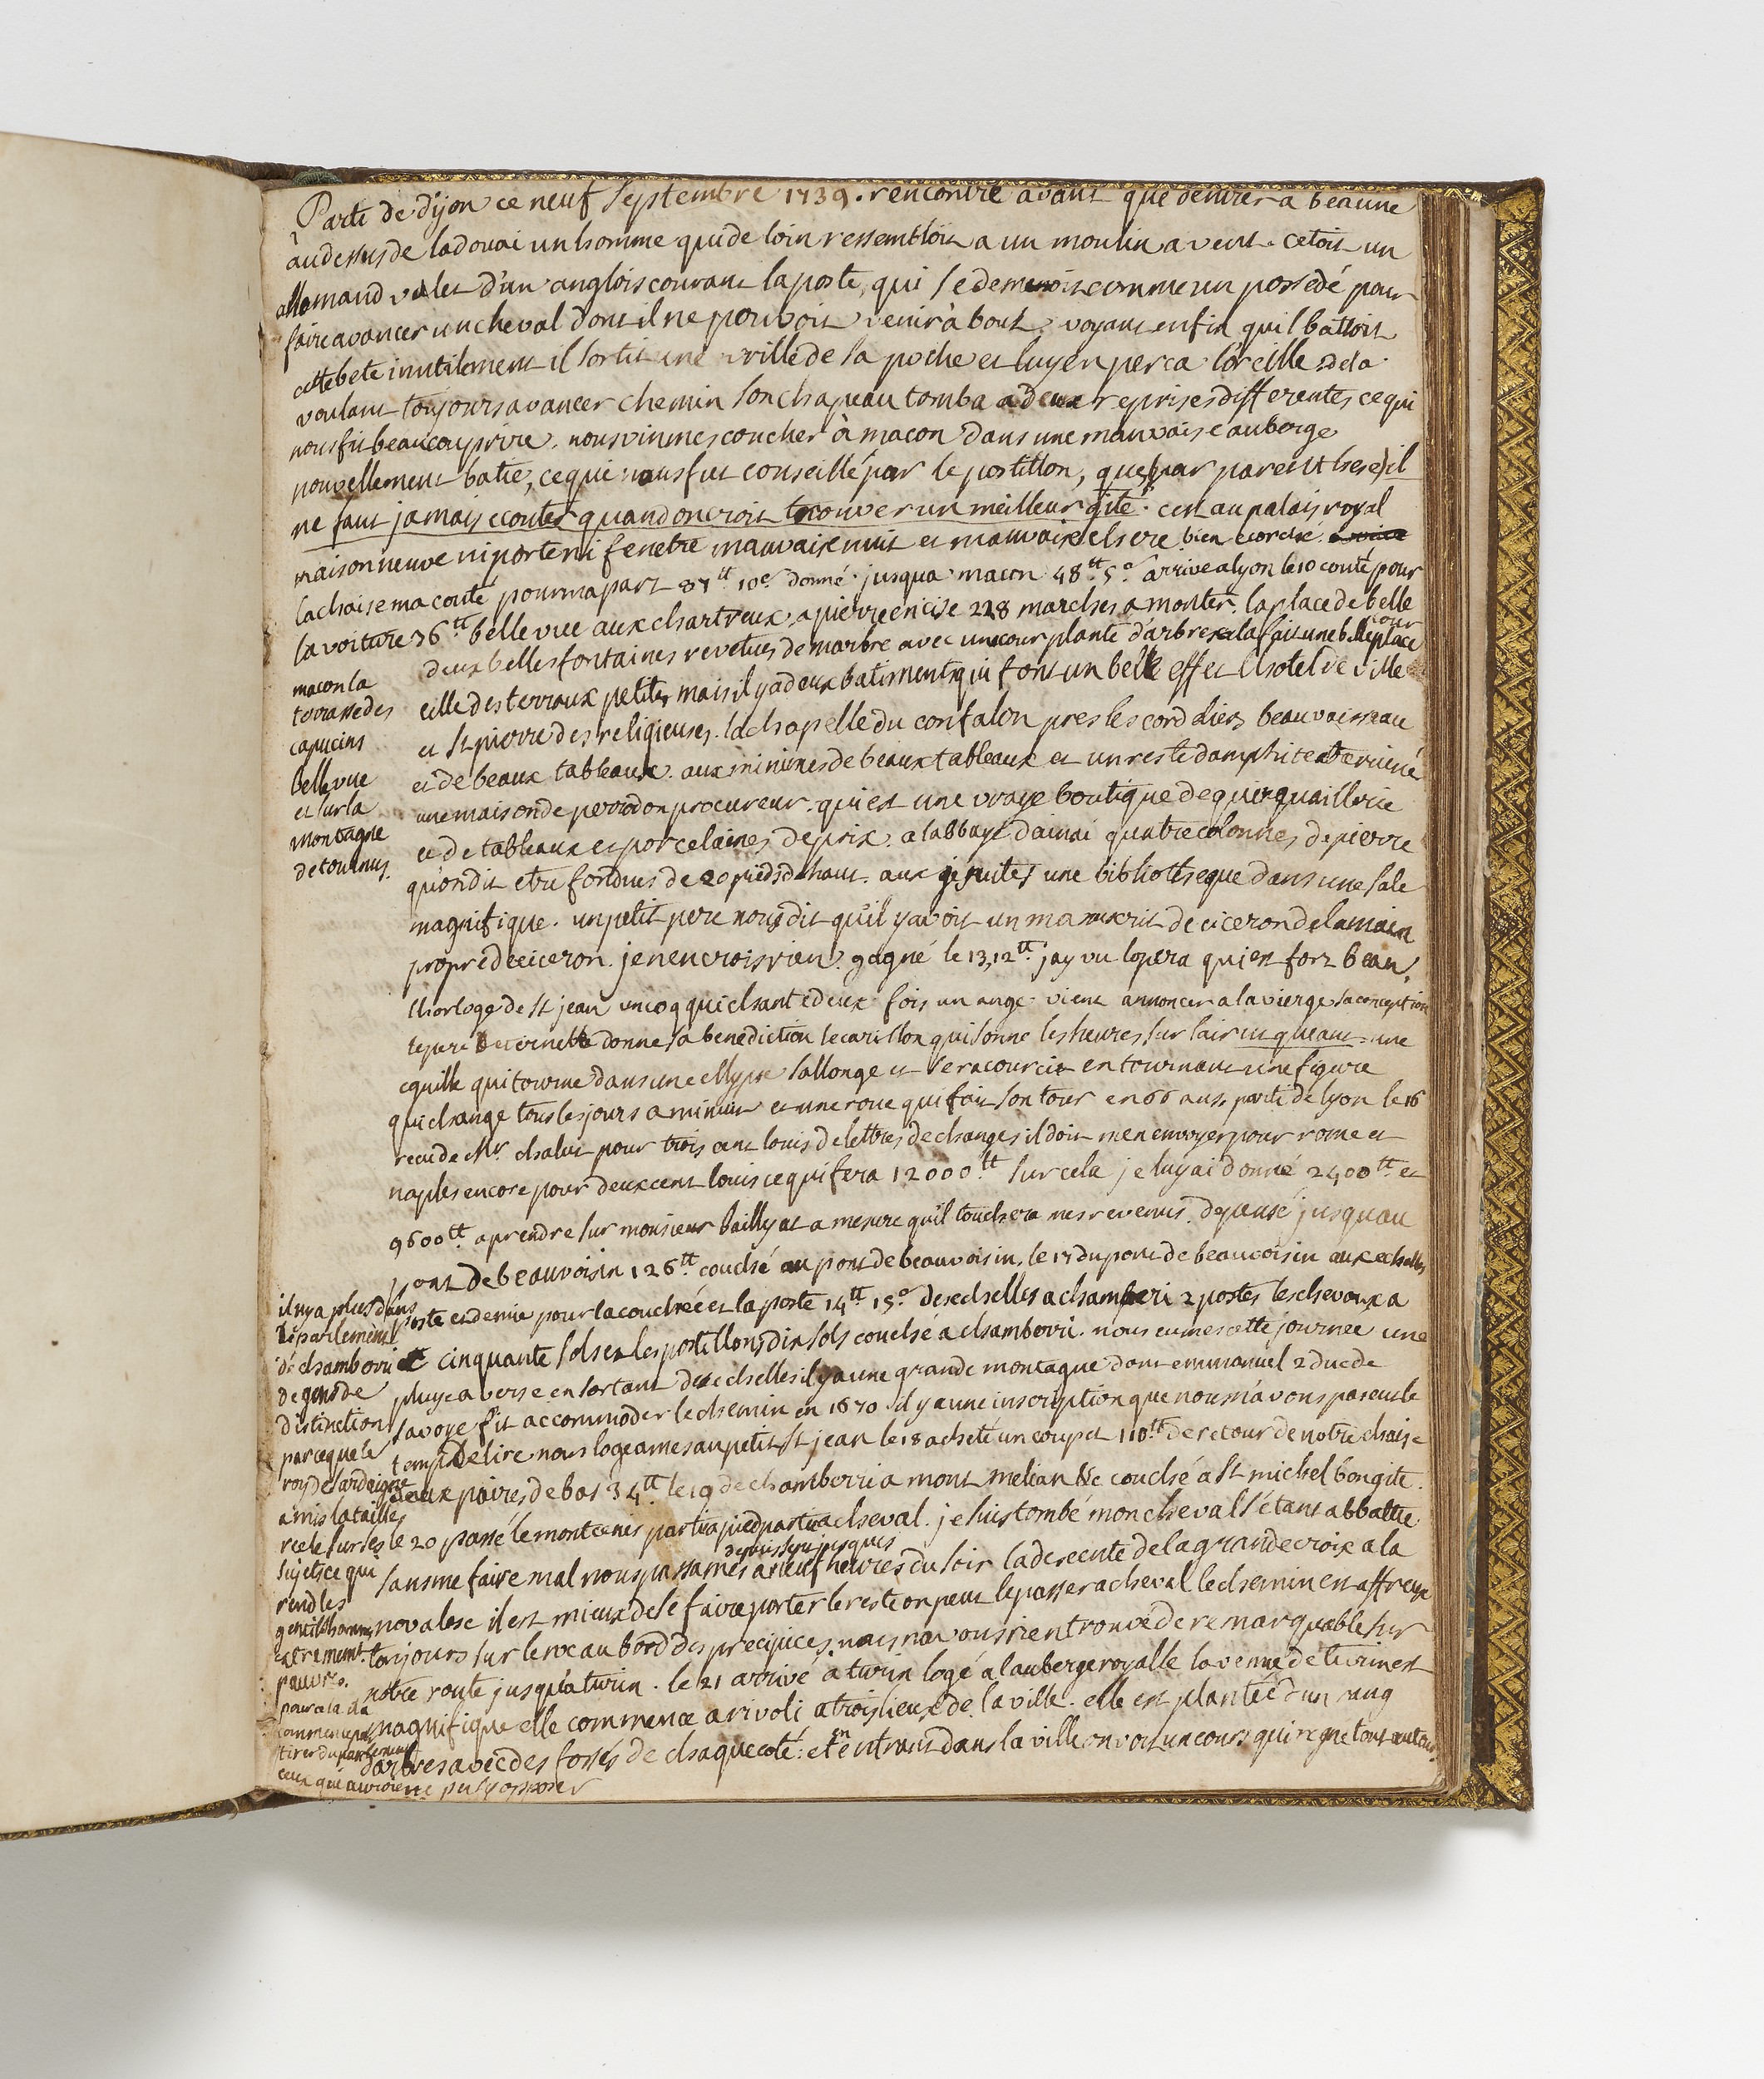 Parti de dijon ce neuf septembre 1739. rencontré avant que dentrer a beaune
au dessus de ladouai un homme qui de loin ressembloit a un moulin a vent. cetoit un
allemand valet d'un anglois courant la poste, qui se demenoit comme un possedé pour
faire avancer un cheval dont il ne pouvoit venir à bout, voyant enfin quil battoit
cette bete inutilement il sortit une vrille de sa poche et luy en perca l'oreille. dela
voulant toujours avancer chemin son chapeau tomba a deux reprises differentes ce qui
nous fit beaucoup rire. nous vinmes coucher à macon dans une mauvaise auberge
nouvellement batie, ce qui nous fut conseillé par le postillon, que (par parenthese) il
ne faut jamais ecouter quand on croit trouver un meilleur gîte. cest au palais royal
maison neuve ni porte ni fenetre mauvaise nuit et mauvaise chere bien ecorché.
la chaise ma couté pour ma part 87tt 10s donné jusqua macon 48tt 5s arrivé a lyon le 10 couté pour
la voiture 36tt belle vue aux chartreux, a pierre encise 228 marches a monter. la place de belle
cour
deux belles fontaines revetues de marbre avec une cour planté d'arbres cela fait une belle place
celle des terraux petite, mais il y a deux batiments qui font un bel effet l'hotel de ville
et st pierre des religieuses. la chapelle du confalon pres les cordeliers beau vaisseau
et de beaux tableaux. aux minimes de beaux tableaux et un reste damphiteatre ruiné
une maison de perrodon procureur. qui est une vraye boutique de quinquaillerie
et de tableaux et porcelaines de prix. a labbaye dainai quatre colonnes de pierre
qu'on dit etre fondues de 20 pieds de haut. aux jesuites une bibliotheque dans une sale
magnifique. un petit pere nous dit qu'il y avoit un manuscrit de ciceron de la main
propre de ciceron. je nen crois rien. gagné le 13, 12tt. j'ay vu lopera qui est fort beau.
l'horloge de st jean un coq qui chante deux fois un ange vient annoncer a la vierge sa conception
le pere eternel donne sa benediction le carillon qui sonne les heures sur lair ut queant. une
eguille qui tourne dans une ellypse sallonge et se racourcit en tournant une figure
qui change tous les jours a minuit et une roue qui fait son tour en 66 ans. parti de lyon le 16
receu de Mr. chalut pour trois cent louis de lettres de changes il doit men envoyer pour rome et
naples encore pour deux cent louis ce qui fera 12000tt sur cela je luy ai donné 2400tt et
9600tt a prendre sur monsieur baillyat a mesure qu'il touchera mes revenus. depensé jusquau
pont de beauvoisin 126tt couché au pont de beauvoisin. le 17 du pont de beauvoisin aux echelles
poste et demie pour la couchée et la poste 14tt 15s des echelles a chamberi 2 postes les chevaux a
cinquante sols et les postillons dix sols couché a chamberri. nous eumes cette journee une
pluye a verse en sortant des echelles il y a une grande montagne dont emmanuel 2 duc de
savoye fit accommoder le chemin en 1670 il y a une inscription que nous n'avons pas eu le
temps de lire. nous logeames au petit st jean le 18 acheté un coup et 110tt de retour de notre chaise
deux paires de bas 34tt le 19 de chamberri a mont melian couché a st michel bon gite.
le 20 passé le mont cenis partie a pied partie a cheval. je suis tombé mon cheval s'étant abbattu
depuis sept jusques
sans me faire mal nous passames a neuf heures du soir la descente de la grande croix a la
novalese il est mieux de se faire porter le reste on peut le passer a cheval. le chemin est affreux
toujours sur le roc au bord des precipices. nous n'avons rien trouvé de remarquable sur
notre route jusqu'a turin. le 21 arrivé a turin logé a l'auberge royalle. la venue de turin est
magnifique elle commence a rivoli a trois lieux de la ville. elle est plantée d'un rang
d'arbres avec des fossés de chaque coté: et en entrant dans la ville on voit un cours qui regne tout autour
macon la
terrasse des
capucins
belle vue
et sur la
montagne
de tournus.
il n'y a plus dans
le parlement
de chamberri
de gens de
distinction
parce que le
roy de sardaigne
a mis la taille
reele sur ses
sujets ce qui
rend les
gentilshommes
extremement
pauvres.
pour cela il a
commencé par
tirer du parlement
ceux qui auroient pu s'y opposer